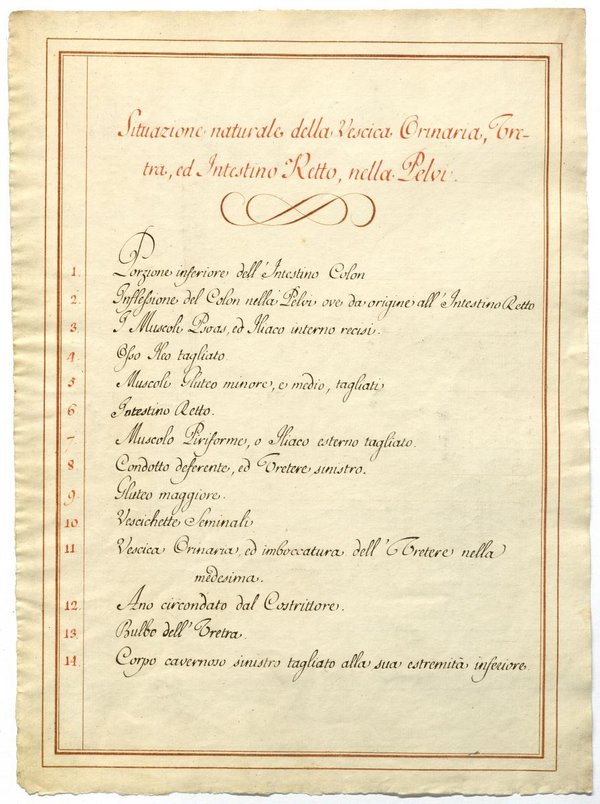 Situazione naturale della Vescica Orinaria, Vre-
tra, ed Intestino Retto, nella Pelvi.
1. Porzione inferiore dell'Intestino Colon
2. Inflessione del Colon nella Pelvi ove da origine all'Intestino Retto
3 I Muscoli Psoas, ed Iliaco interno recisi.
4 Osso Ileo tagliato
5 Muscoli Gluteo minore, e medio, tagliati
6 Intestino Retto.
7. Muscolo Piriforme, o Iliaco esterno tagliato.
8 Condotto deferente, ed Vretere sinistro.
9. Gluteo maggiore.
10. Vescichette Seminali
11 Vescica Orinaria, ed imboccatura dell'Vretere nella
medesima.
12. Ano circondato dal Costrittore.
13. Bulbo dell'Vretra.
14. Corpo cavernoso sinistro tagliato alla sua estremità inferiore.